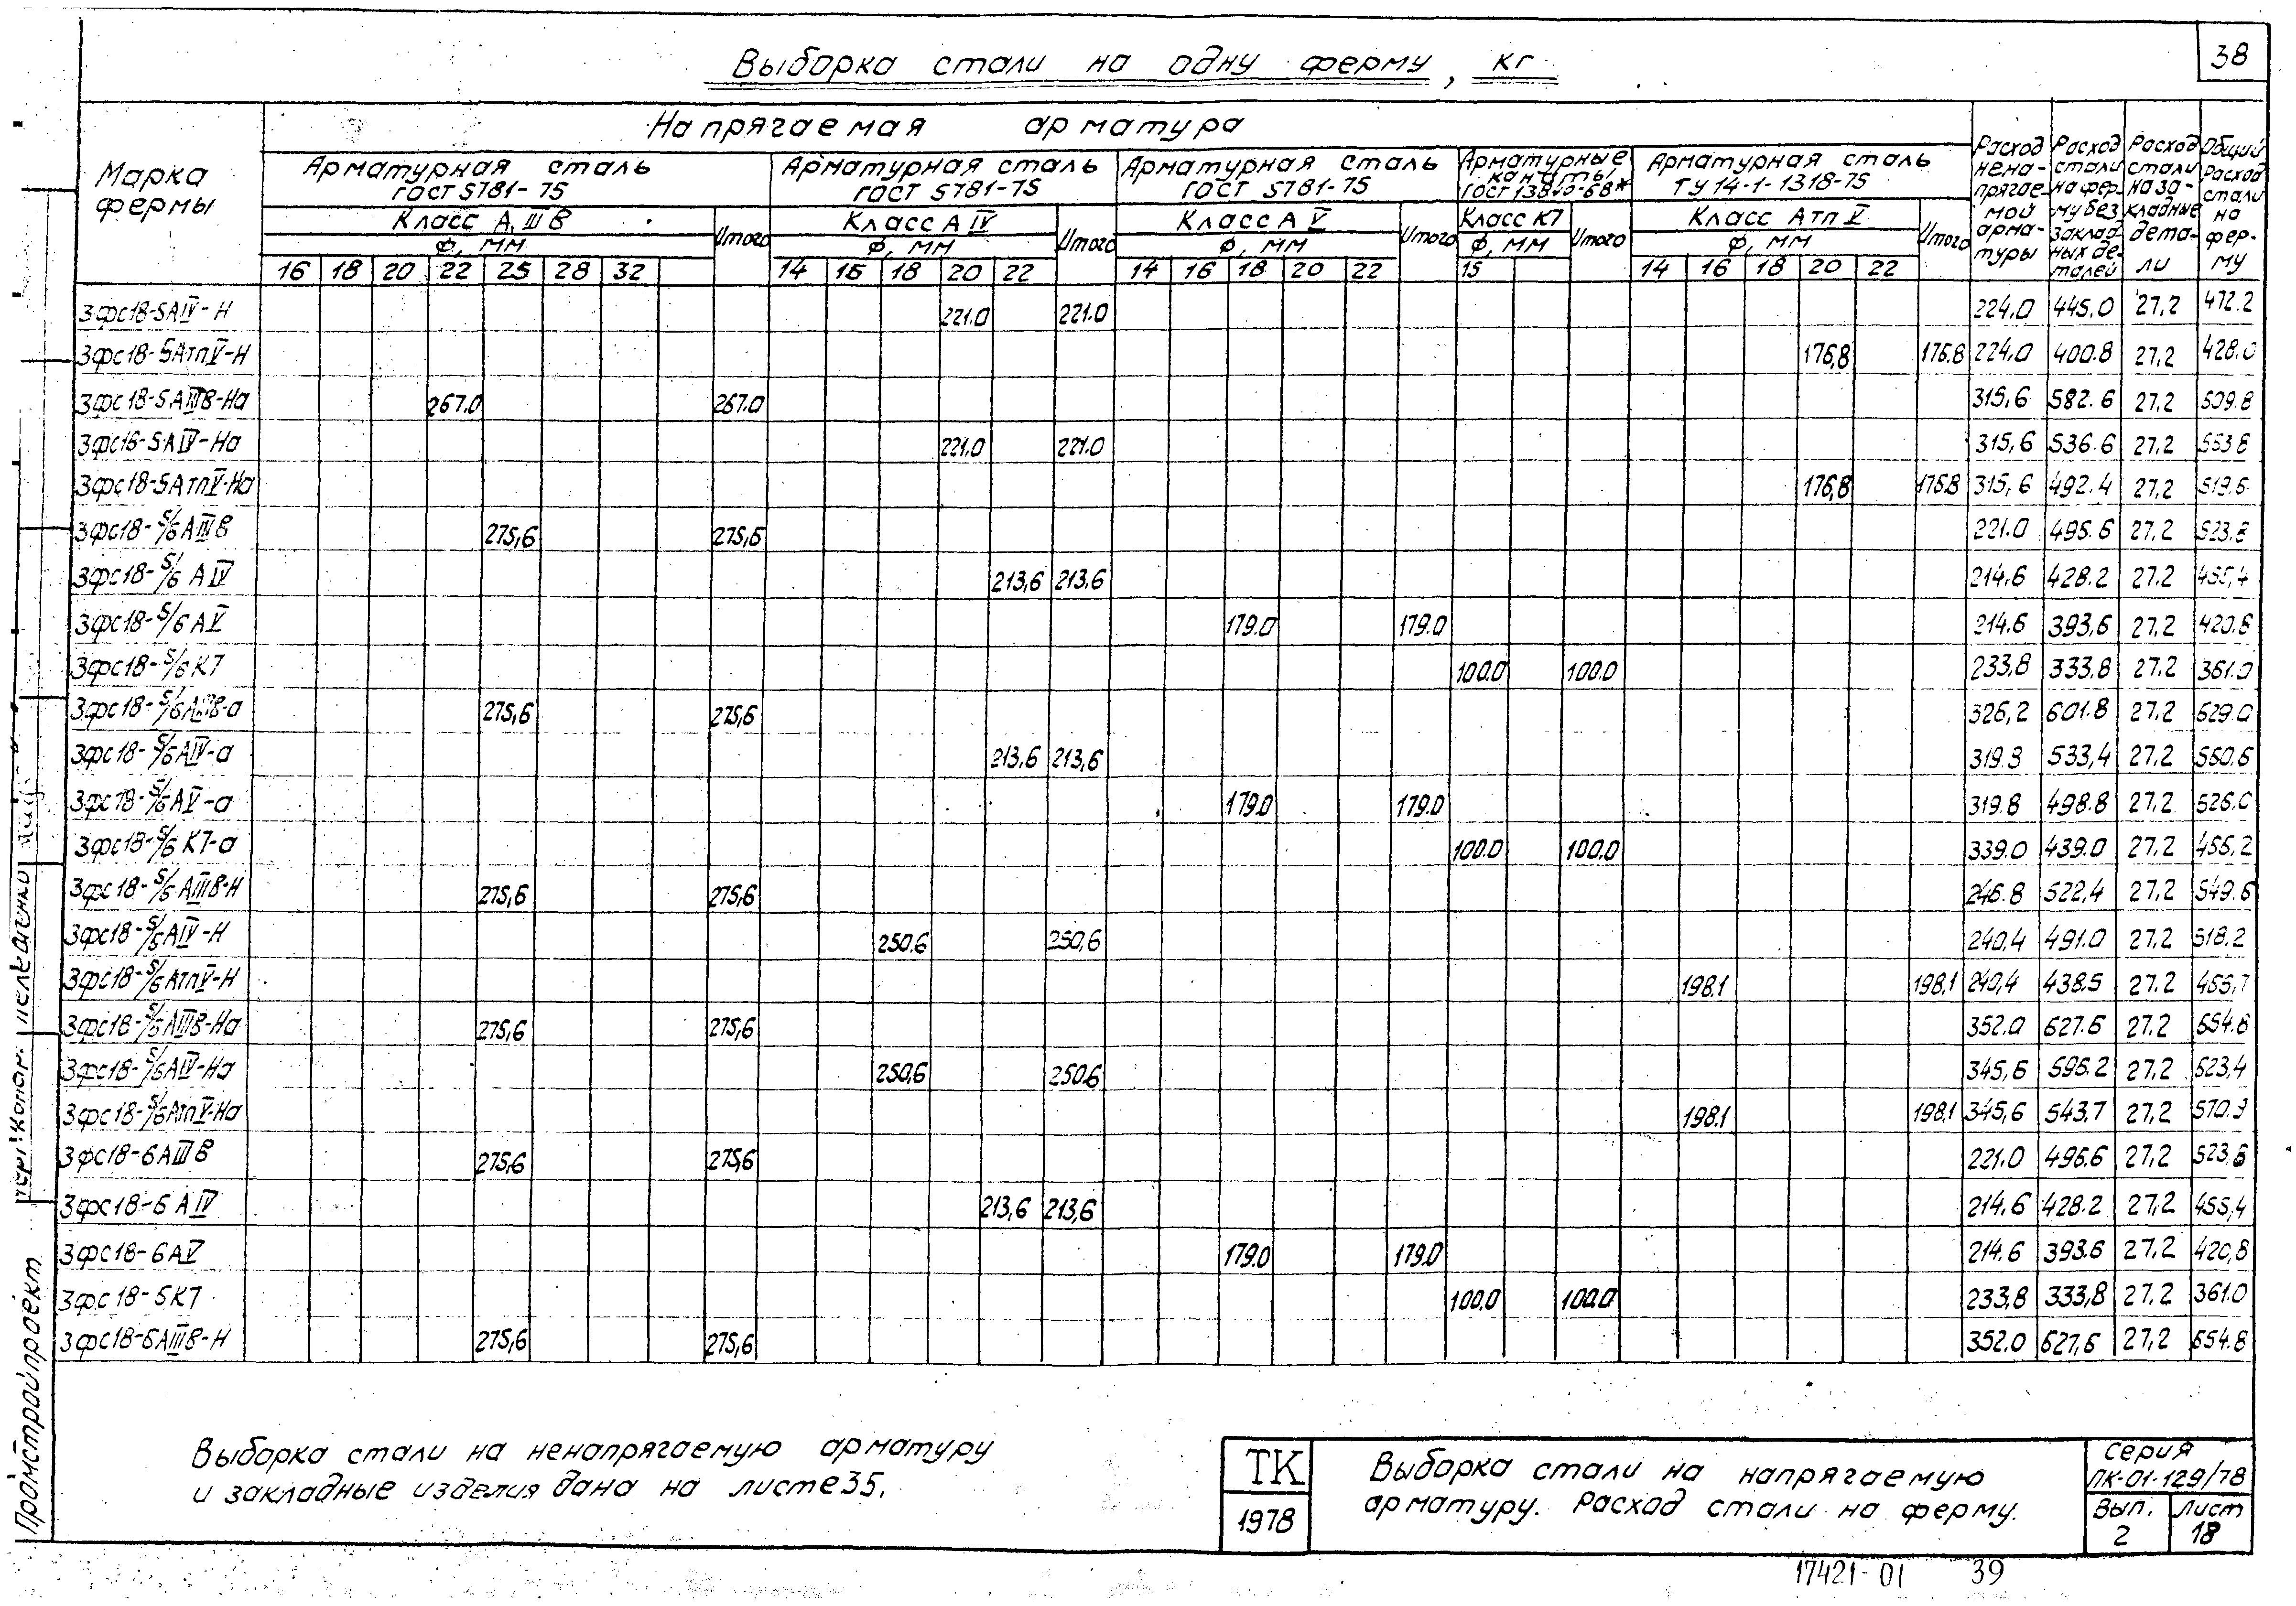 38
Выборка стали на одну ферму, кг
Марка фермы
Напрягаемая арматура
Арматурная сталь ГОСТ 5781-75
Арматурная сталь ГОСТ 5781-75
Арматурная сталь ГОСТ 5781-75
Арматурные канаты ГОСТ 13840-68*
Арматурная сталь ТУ 14-1-1318-75
Расход ненапрягаемой арматуры
Расход стали на ферму без закладных деталей
Расход стали на закладные детали
Общий расход стали на ферму
Класс А IIIв Итого Класс А IV Итого Класс А V Итого Класс К7 Итого Класс Атп V Итого
ф, мм ф, мм ф, мм ф, мм ф, мм
16 18 20 22 25 28 32 14 16 18 20 22 14 16 18 20 22 15 14 16 18 20 22
3фс18-5АIV-Н 221.0 221.0 224.0 445.0 27,2 472.2
3фс18-5АтпV-Н 176,8 176.8 224.0 400.8 27,2 428.0
3фс18-5АIIIв-На 267.0 267.0 315,6 582.6 27,2 609.8
3фс18-5АIV-На 221.0 221.0 315,6 536.6 27,2 563.8
3фс18-5АтпV-На 176,8 176.8 315,6 492.4 27,2 519.6
3фс18-5/6АIIIв 275,6 275,6 221.0 496.6 27,2 523.8
3фс18-5/6 АIV 213,6 213.6 214.6 428.2 27.2 455,4
3фс18-5/6АV 179.0 179.0 214.6 393,6 27,2 420.8
3фс18-5/6К7 100.0 100.0 233,8 333.8 27,2 361.0
3фс18-5/6АIIIв-а 275,6 275,6 326,2 601.8 27,2 629.0
3фс18-5/6АIV-а 213,6 213,6 319.8 533,4 27,2 560.6
3фс18-5/6АV-а 179.0 179.0 319.8 498.8 27,2 526.0
3фс18-5/6 К7-а 100.0 100.0 339.0 439.0 27,2 466,2
3фс18-5/6 АIIIв-Н 275,6 275,6 246.8 522,4 27,2 549.6
3фс18-5/6АIV-Н 250.6 250,6 240,4 491.0 27,2 518.2
3фс18-5/6АтпV-Н 198,1 198,1 240,4 438.5 27.2 465,7
3фс18-5/6АIIIв-На 275,6 275,6 352.0 627.6 27.2 654.8
3фс18-5/6АIV-На 250,6 250.6 345,6 596.2 27,2 623,4
3фс18-5/6АтпV-На 198.1 198,1 345,6 543.7 27,2 570.9
3фс18-6АIIIв 275,6 275,6 221.0 496.6 27,2 523,8
3фс18-6 АIV 213,6 213,6 214,6 428.2 27,2 455,4
3фс18-6АV 179.0 179.0 214.6 393.6 27,2 420,8
3фс18-6К7 100,0 100.0 233,8 333,8 27,2 361.0
3фс18-6АIIIв-Н 275,6 275,6 352.0 627,6 27,2 654.8
Выборка стали на ненапрягаемую арматуру
и закладные изделия дана на листе 35.
ТК
1978
Выборка стали на напрягаемую
арматуру. Расход стали на ферму.
Серия
ПК-01-129/78
Вып. 2
Лист 18
Промстройпроект
17421-01 39